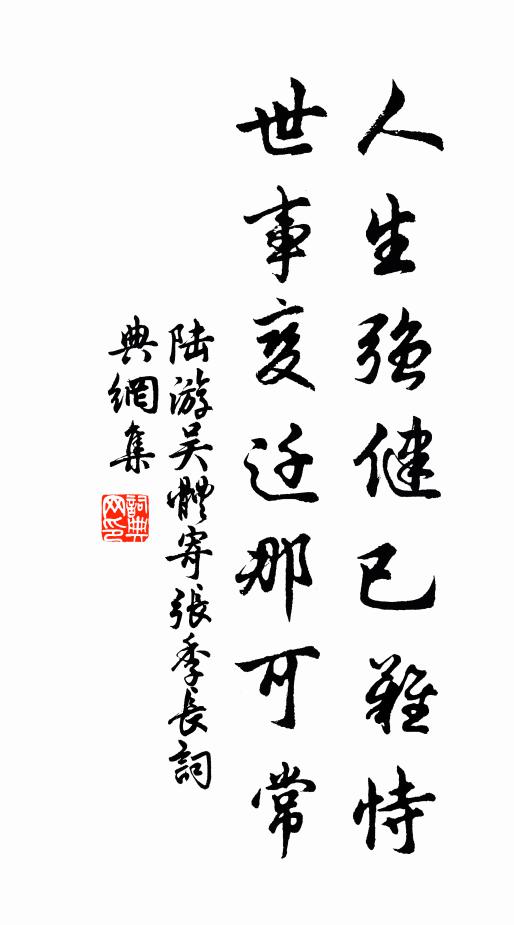 人生強健已難恃
世事變迁那可常
陆游吴體寄張季長詞
典網集
詞典网印